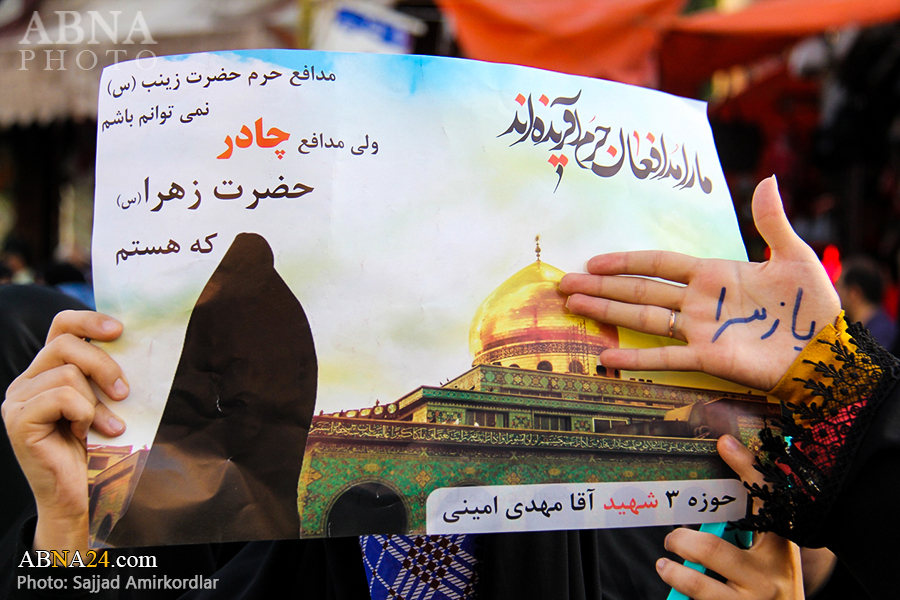 ABNA
PHOTO
مدافع حرم حضرت زینب (س)
نمی توانم باشم
ولی مدافع چادر
حضرت زهرا (س)
که هستم
ما را مدافعان حرم آفریده اند
یا زهرا
حوزه ۳ شهید آقا مهدی امینی
ABNA24.com
Photo: Sajjad Amirkordlar